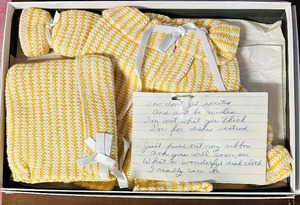 Now don't get excited
And don't be misled
I'm not what you think
I'm for dishes instead
Just pull out my ribbon
And you will soon see
What a wonderful dish cloth
I really can be